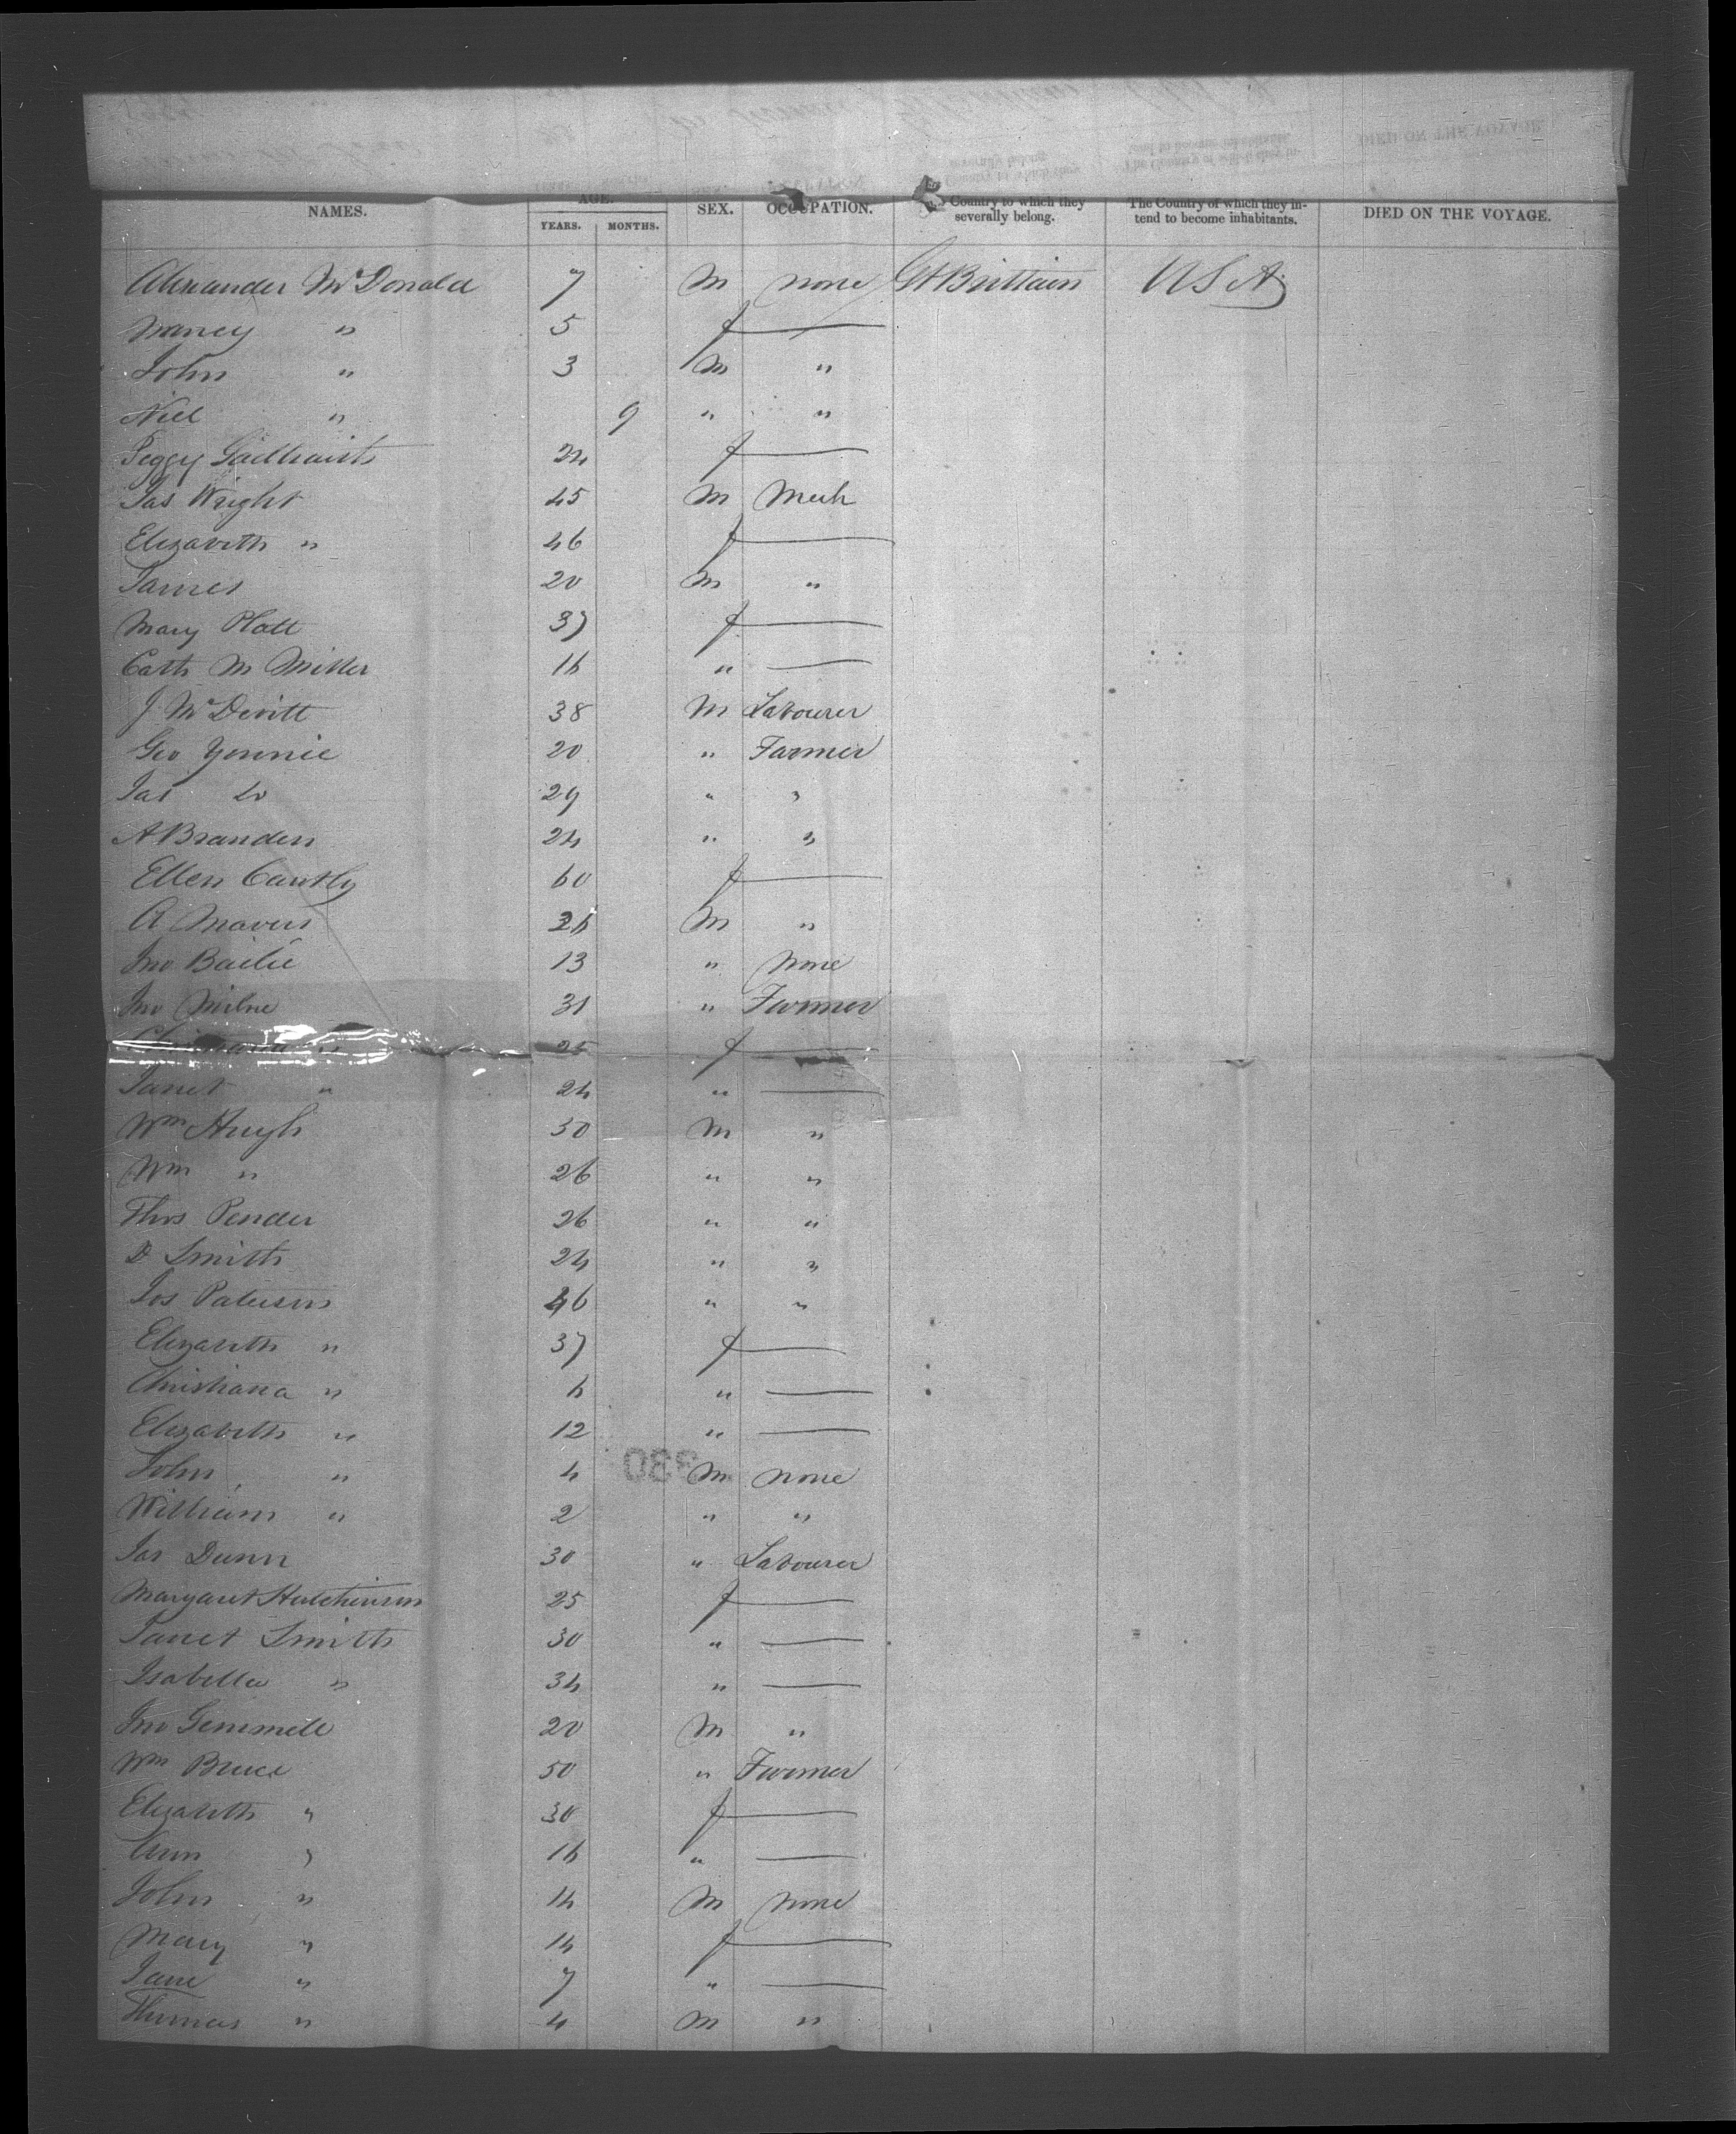 NAMES. AGE. SEX. OCCUPATION. Country to which they severally belong. The Country of which they intend to become inhabitants. DIED ON THE VOYAGE.
YEARS. MONTHS.
Alexander McDonald 7 M none Gt Brittain U S A
Nancy " 5 f —
John " 3 M "
Niel " 9 " "
Peggy 24 f —
Jas Wright 45 M Mech
Elizabeth " 46 f —
James 20 M "
Mary Platt 37 f —
Cath M Miller 16 " —
J McDevitt 38 M Labourer
Geo Yonnie 20 " Farmer
Jas Do 29 " "
A Branden 24 " "
Ellen Cantly 60 f —
A Mavers 26 M "
Jno Bailie 13 " None
Jno Milne 31 " Farmer
" 25 f —
Janet " 24 " —
Wm Hugh 50 M "
Wm " 26 " "
Thos Pender 26 " "
D Smith 24 " "
Jos Paterson 46 " "
Elizabeth " 37 f —
Christiana " 6 " —
Elizabeth " 12 " —
John " 4 M none
William " 2 " "
Jas Dunn 30 " Labourer
Margaret Hutchinson 25 f —
Janet Smith 30 " —
Isabella " 34 " —
Jno Gemmell 20 M "
Wm Bruce 50 " Farmer
Elizabeth " 30 f —
Ann " 16 " —
John " 14 M none
Mary " 14 f —
Jane " 7 " —
Thomas " 4 M "